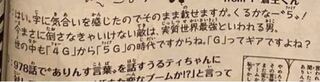 はい、字に気合いを感じたのでそのまま載せますが、くるかなー"５。！
今まさに倒さなきゃいけない敵は、実質世界最強といわれる男、
世の中も「４Ｇ」から「５Ｇ」の時代ですからね。「Ｇ」ってギアですよね？
:978話で"ありんす言葉〟を話すうるティちゃんに
なブームか!?」と言って